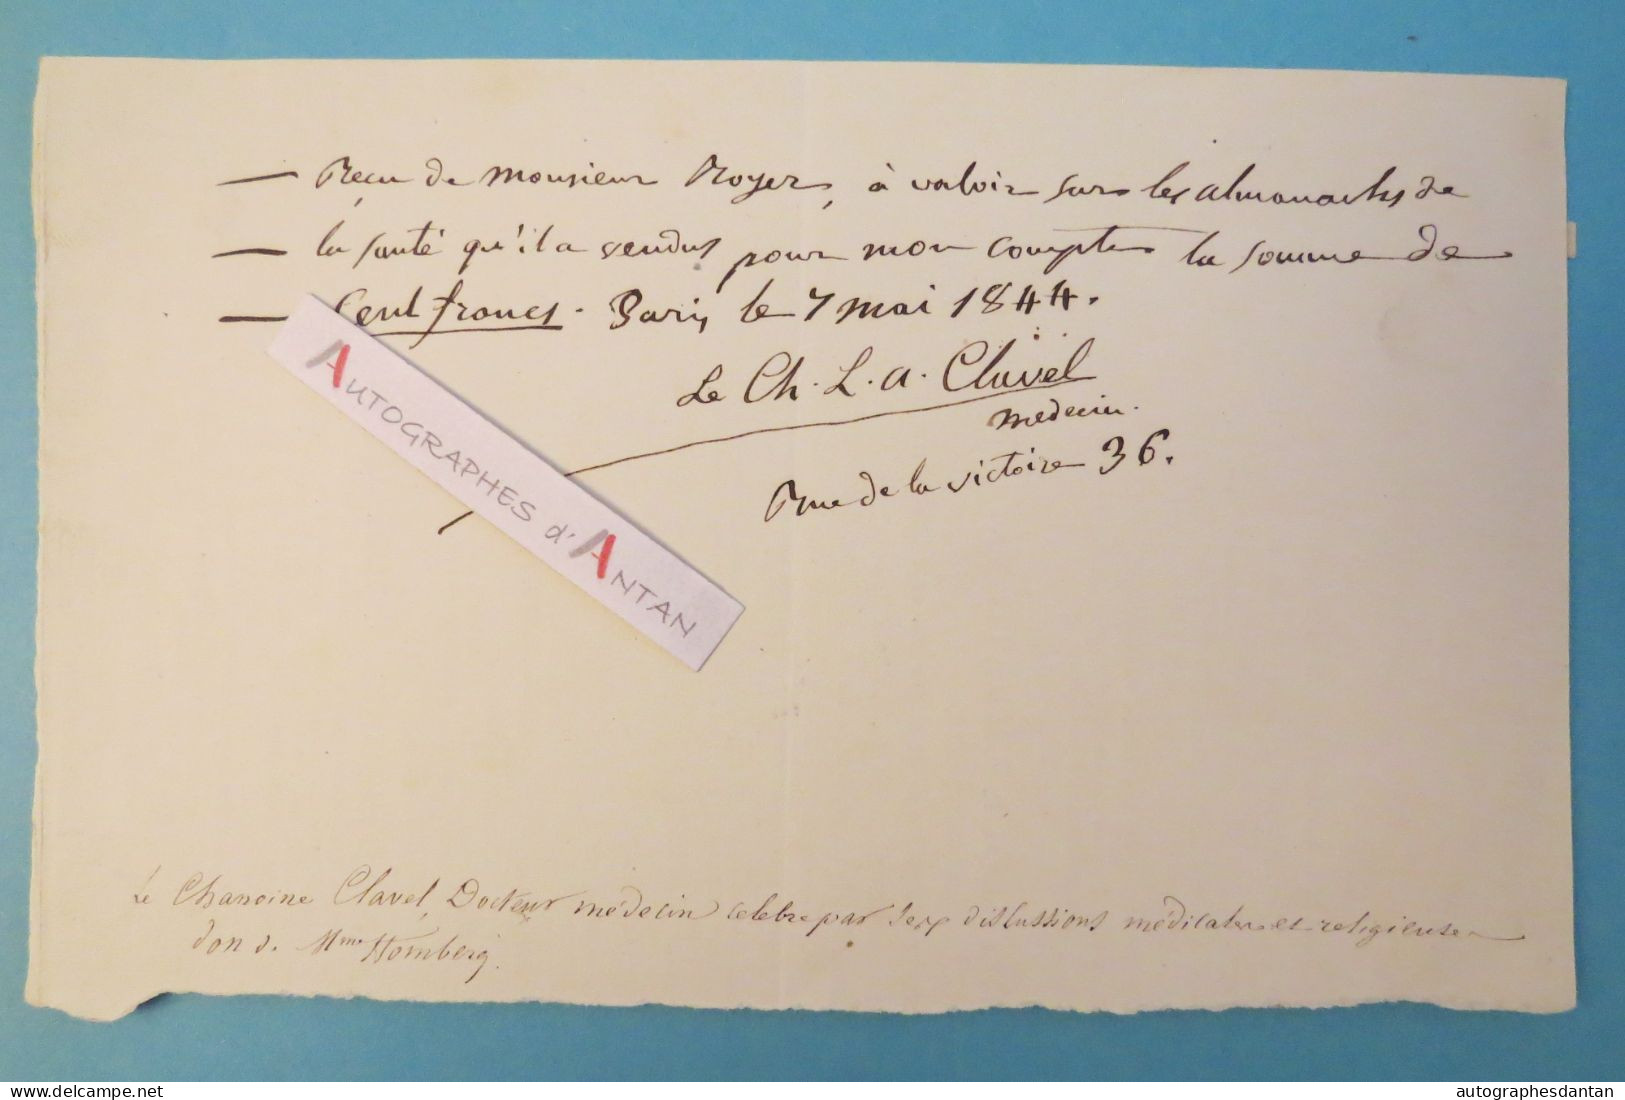 — Reçu de monsieur Royer, à valoir sur les almanachs de
— la santé qu'il a vendus pour mon compte la somme de
— Cent francs. Paris le 7 mai 1844.
Le Ch. L. a. Clavel
medecin.
Rue de la victoire 36.
AUTOGRAPHES d'ANTAN
Le Chanoine Clavel, Docteur médecin celebre par ses discussions médicales et religieuses
don d. Mme Homberg.
delcampe.net
autographesdantan